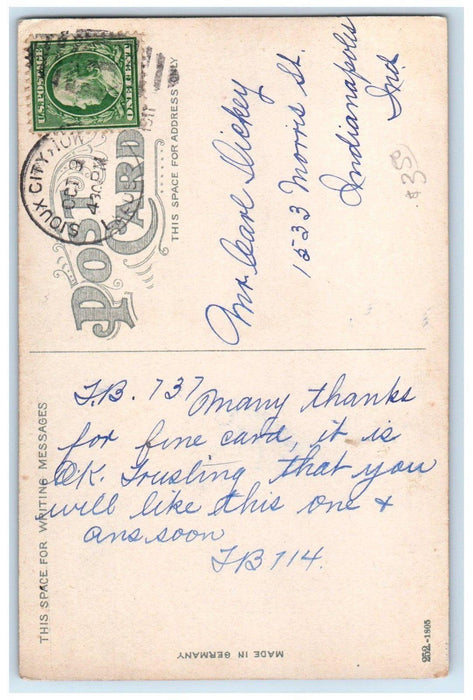 U.S. POSTAGE
ONE CENT
SIOUX CITY
OCT 9
430 PM
1911
POST CARD
THIS SPACE FOR ADDRESS ONLY
Mr. Carl Dickey
1533 Morris St.
Indianapolis
Ind
$3.50
THIS SPACE FOR WRITING MESSAGES
T.B. 737 Many thanks
for fine card, it is
O.K. Trusting that you
will like this one &
ans. soon
TB 114.
MADE IN GERMANY
252.-1805